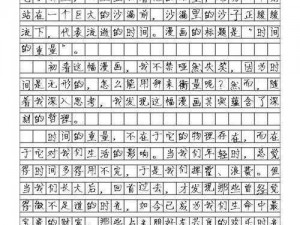 站在一个巨大的沙漏前，沙漏里的沙子正缓缓
流下，代表流逝的时间。漫画的标题是"时间
的重量"。
初看这幅漫画，我不禁哑然失笑，因为时
间是无形的，怎么能用秤来衡量呢？然而，随
着我深入思考，我发现这幅漫画其实蕴含了深
刻的哲理。
时间的重量，不在于它的物理存在，而在
于它对我们生活的影响。当我们年轻时，总觉
得时间多得用不完，于是我们挥霍、浪费。但
当我们长大后，回首过去，才发现那些曾经觉
得微不足道的瞬间，如今都成为我们生命中最
宝贵的财富。那些与朋友